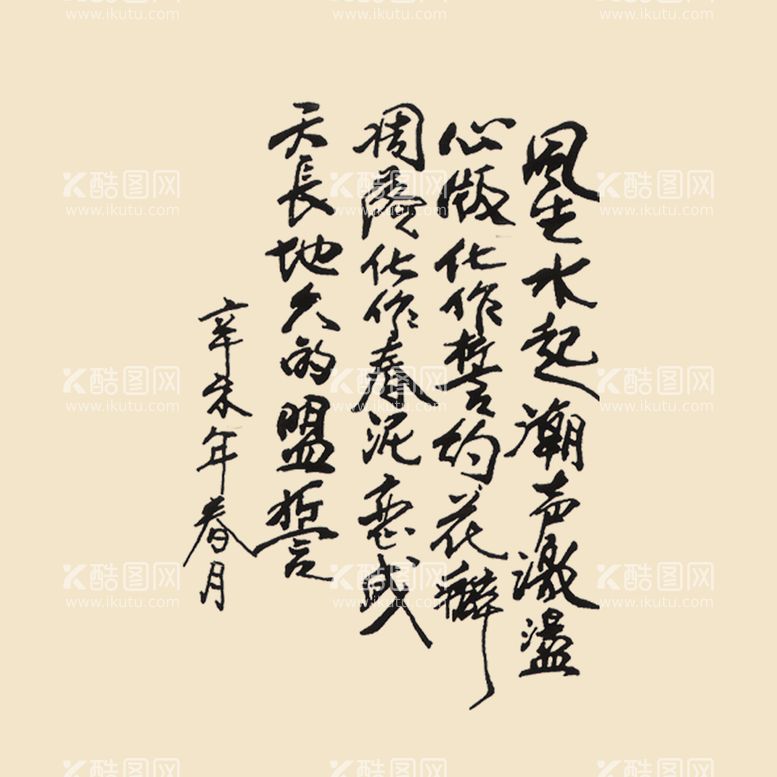 风生水起潮声激盪
心版化作誓约花瓣
凋零化作春泥恋成
天長地久的盟誓
辛未年春月
酷图网
www.ikutu.com